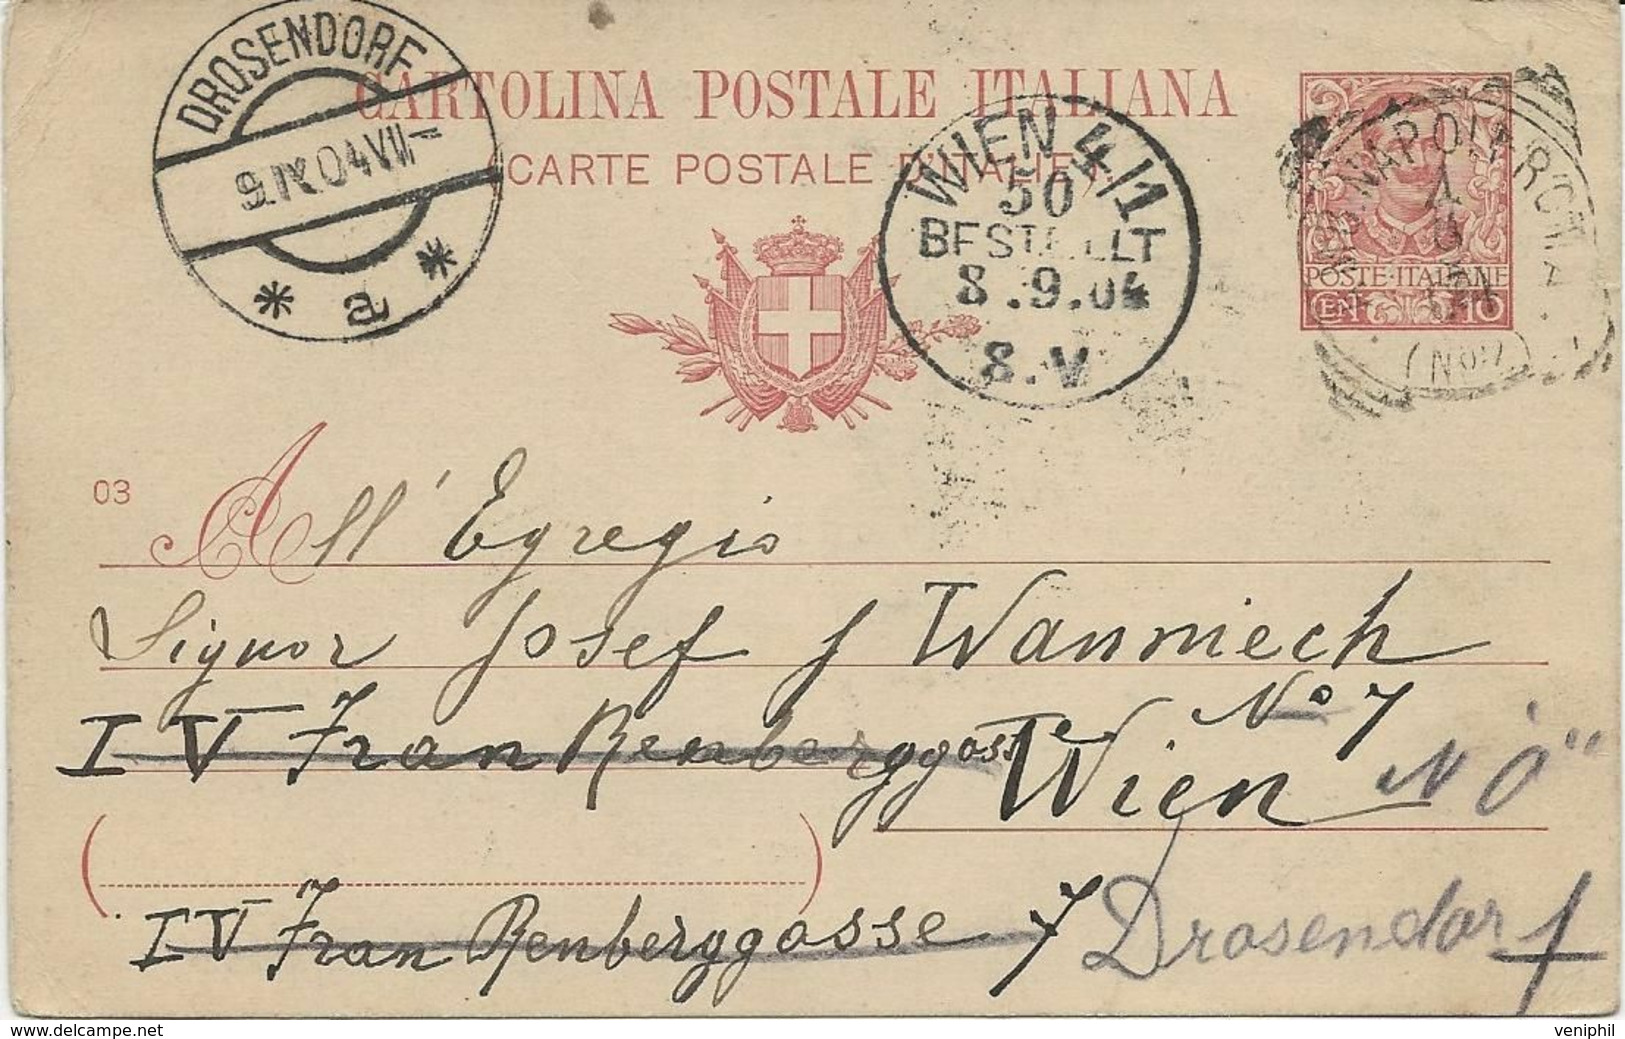 DROSENDORF
9.IX.04 VII
* a *
CARTOLINA POSTALE ITALIANA
(CARTE POSTALE D'ITALIE)
WIEN 4/1
50
BESTELLT
8.9.04
8.V
NAPOLI
POSTE·ITALIANE
CEN 10
03
All' Egregio
Signor Josef f Wanniech
IV Fran Renberggasse No 7
Wien NÖ
IV Fran Renberggosse 7 Drosendorf
www.delcampe.net
veniphil